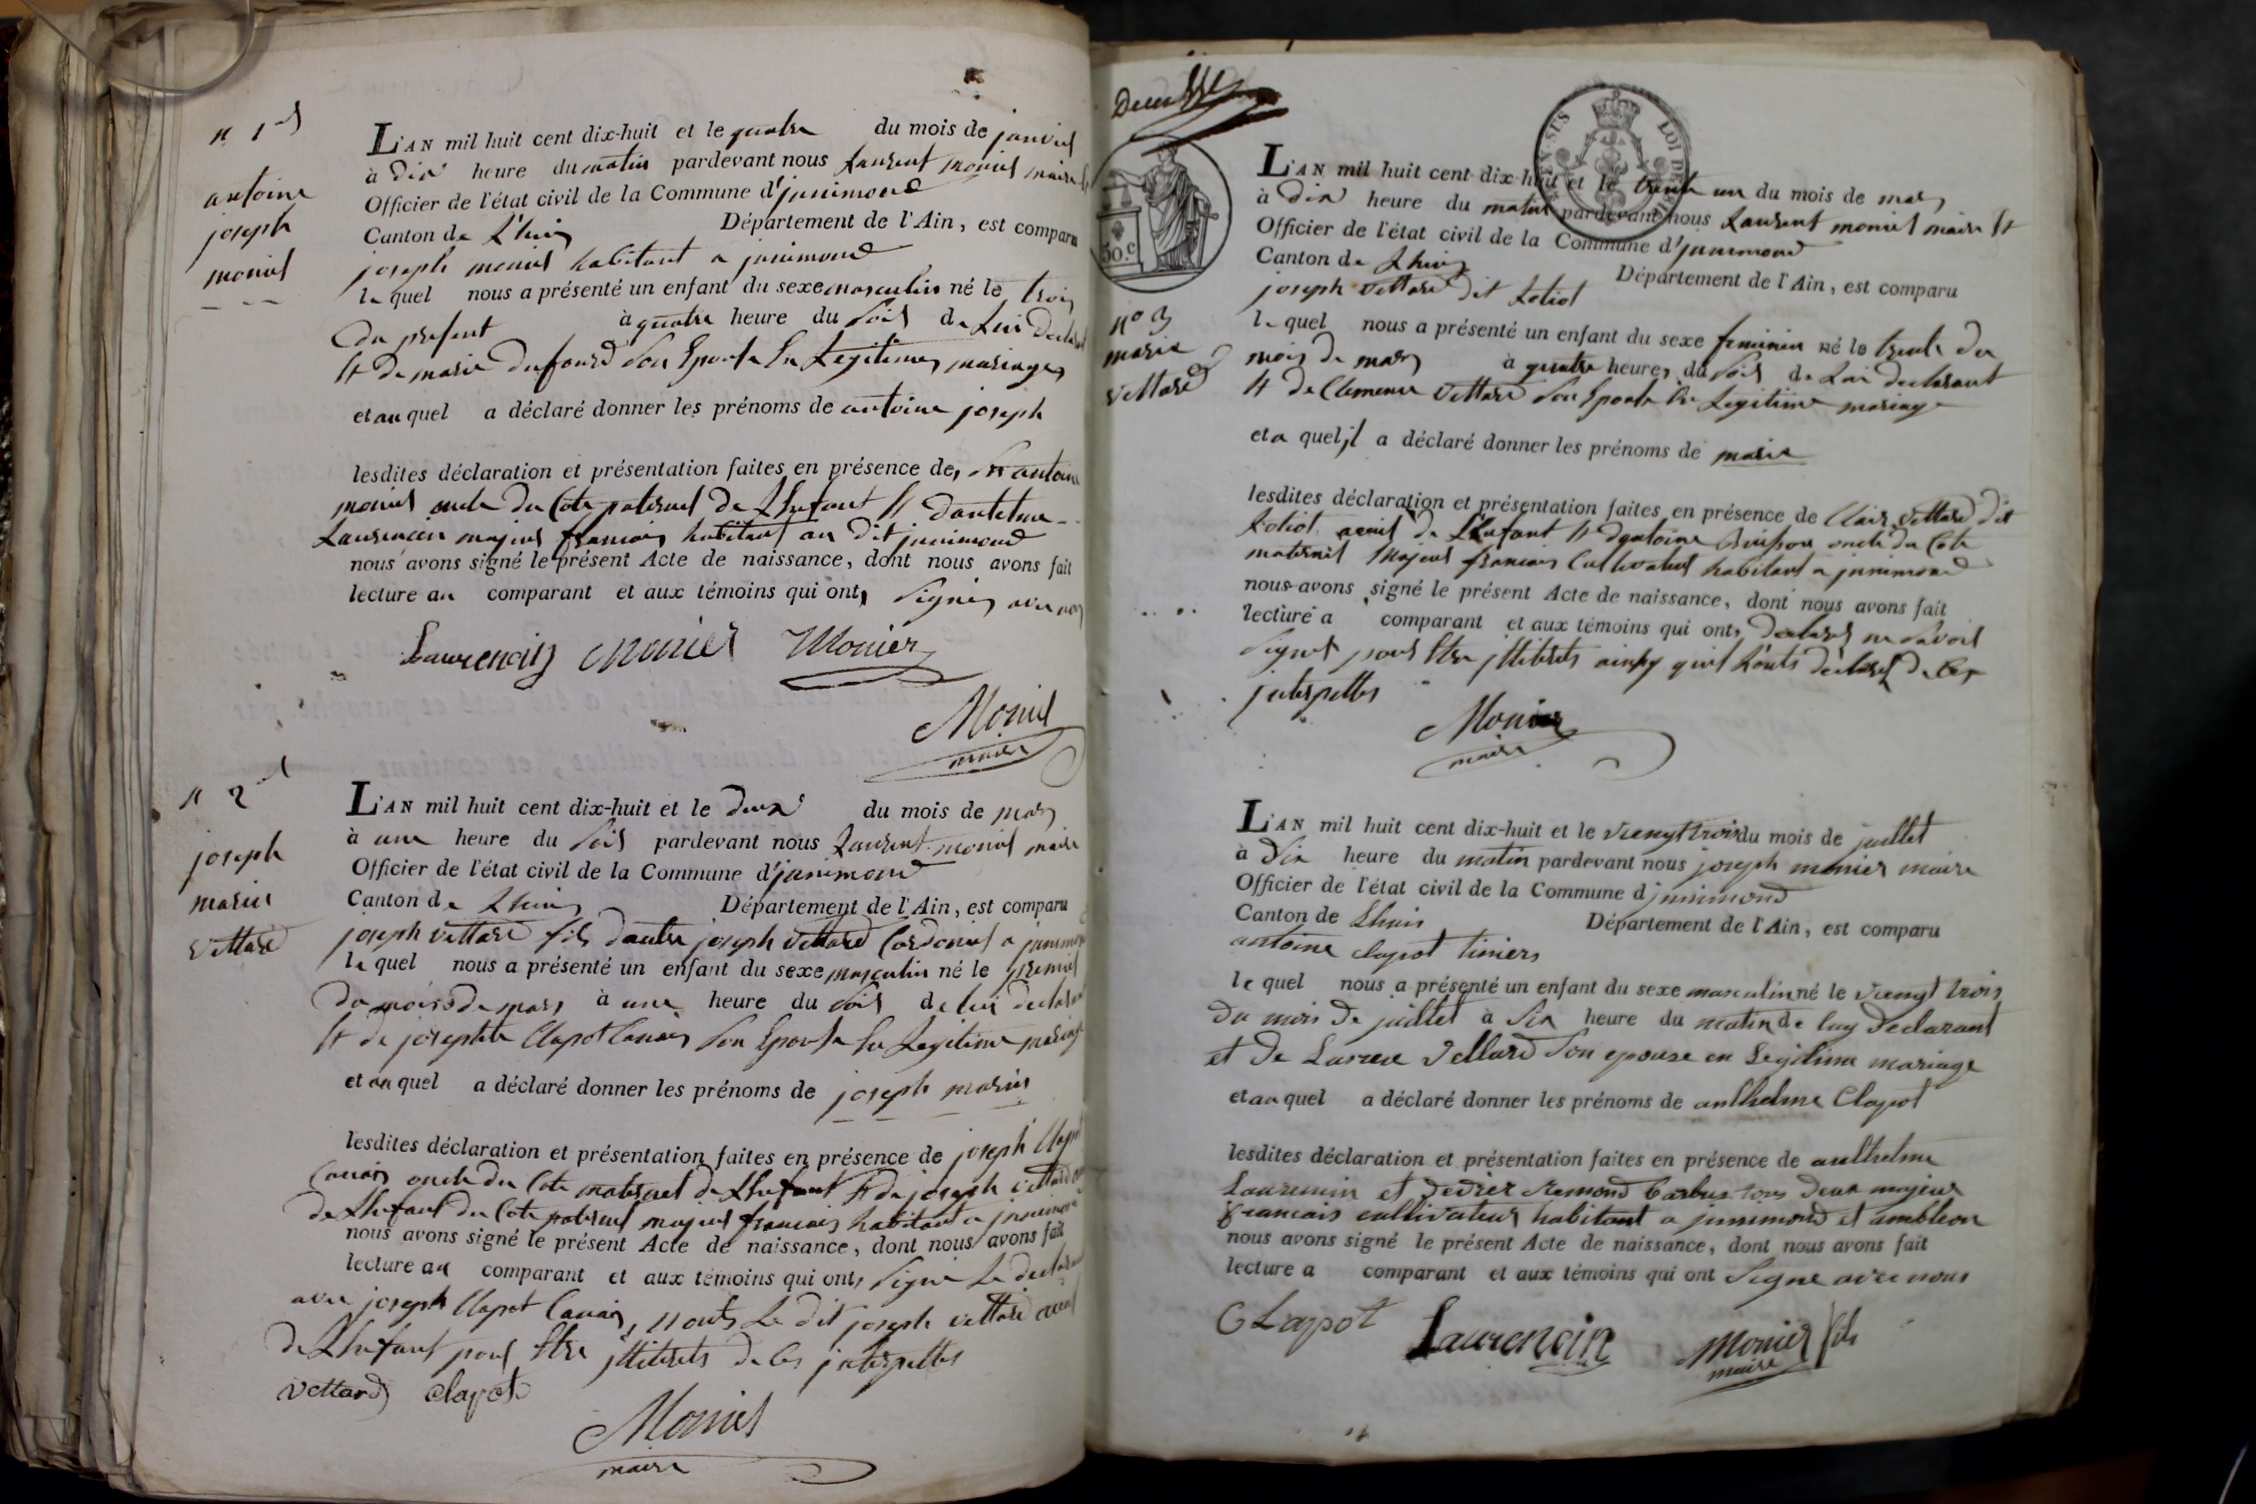 n 1er
antoine
joseph
monier
L'AN mil huit cent dix-huit et le quatre du mois de janvier
à dix heure du matin pardevant nous Laurent monier maire et
Officier de l'état civil de la Commune d'jnnimond
Canton de Lhuis Département de l'Ain, est comparu
joseph monier habitant a jnnimond
le quel nous a présenté un enfant du sexe masculin né le trois
du present à quatre heure du soir de lui declarant
et de marie dufourd son Epouse En Legitime mariage
et au quel a déclaré donner les prénoms de antoine joseph
lesdites déclaration et présentation faites en présence de antoine
monier oncle du Cote paternel de L'Enfant et dantelme
Laurencin majeur francais habitant au dit jnnimond
nous avons signé le présent Acte de naissance, dont nous avons fait
lecture au comparant et aux témoins qui ont signés avec nous
Laurencin monier Monier
Monier
maire
n 2
joseph
marin
vettard
L'AN mil huit cent dix-huit et le deux du mois de mars
à une heure du soir pardevant nous Laurent monier maire
Officier de l'état civil de la Commune d'jnnimond
Canton de Lhuis Département de l'Ain, est comparu
joseph vettard fils dautre joseph vettard Cordonier a jnnimond
le quel nous a présenté un enfant du sexe masculin né le premier
du mois de mars à une heure du soir de lui declarant
et de josephte Clapot Canais son Epouse En Legitime mariage
et au quel a déclaré donner les prénoms de joseph marin
lesdites déclaration et présentation faites en présence de joseph Clapot
Canais oncle du Cote maternel de L'Enfant et de joseph vettard
de L'Enfant du Cote paternel majeur francais habitant a jnnimond
nous avons signé le présent Acte de naissance, dont nous avons fait
lecture au comparant et aux témoins qui ont signé Le declarant
avec joseph Clapot Canais, nonts Le dit joseph vettard
de L'Enfant pour Etre jlliterets de ces jnterpelles
vettard clapot
Monier
maire
30.c
LOI DE
n° 3
marie
vettard
L'AN mil huit cent dix-huit et le trente un du mois de mars
à dix heure du matin pardevant nous Laurent monier maire et
Officier de l'état civil de la Commune d'jnnimond
Canton de Lhuis Département de l'Ain, est comparu
joseph vettard dit Loliot
le quel nous a présenté un enfant du sexe feminin né le trente du
mois de mars à quatre heures du soir de Lui declarant
et de Clemence Vettard son Epouse En Legitime mariage
et a quel il a déclaré donner les prénoms de marie
lesdites déclaration et présentation faites en présence de Clair Vettard dit
Loliot de L'Enfant et dantoine oncle du Cote
maternel Majeur francais Cultivateur habitant a jnnimond
nous avons signé le présent Acte de naissance, dont nous avons fait
lecture a comparant et aux témoins qui ont declaré ne savoir
signer pour Etre jlliterets ainsy quil Lonts declaré de Ces
jnterpelles
Monier
maire
L'AN mil huit cent dix-huit et le viengt trois du mois de juillet
à dix heure du matin pardevant nous joseph monier maire
Officier de l'état civil de la Commune d jnnimond
Canton de Lhuis Département de l'Ain, est comparu
antoine clapot
le quel nous a présenté un enfant du sexe masculin né le viengt trois
du mois de juillet à six heure du matin de luy declarant
et de Vettard son epouse en Legitime mariage
et au quel a déclaré donner les prénoms de anthelme Clapot
lesdites déclaration et présentation faites en présence de anthelme
Laurencin et remond barbus tous deux majeur
francais cultivateur habitant a jnnimond et ambleon
nous avons signé le présent Acte de naissance, dont nous avons fait
lecture a comparant et aux témoins qui ont signe avec nous
Clapot Laurencin monier fils
maire